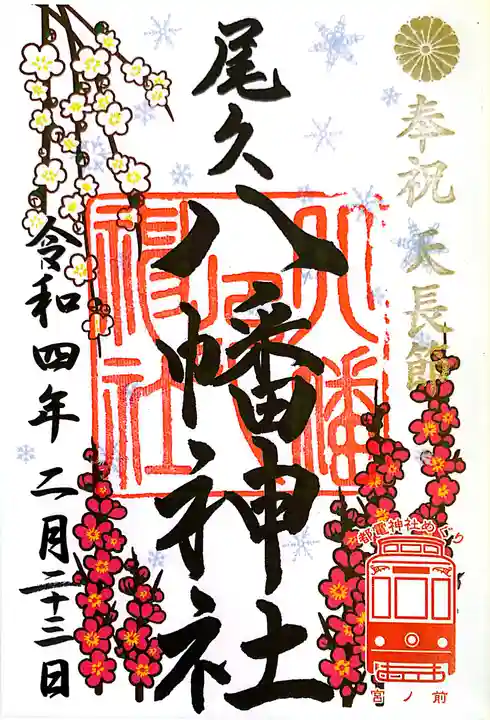 奉祝 天長節
尾久八幡神社
八幡神社
令和四年 二月二十三日
都電神社めぐり
宮ノ前